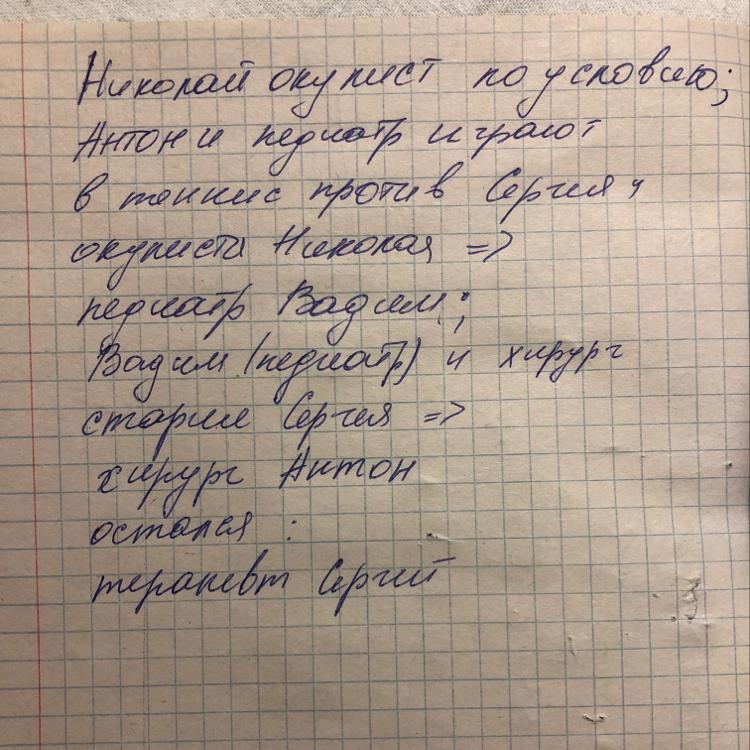 Николай окулист по условию;
Антон и педиатр играют
в теннис против Сергея и
окулиста Николая =>
педиатр Вадим;
Вадим (педиатр) и хирург
старше Сергея =>
хирург Антон
остался :
терапевт Сергей